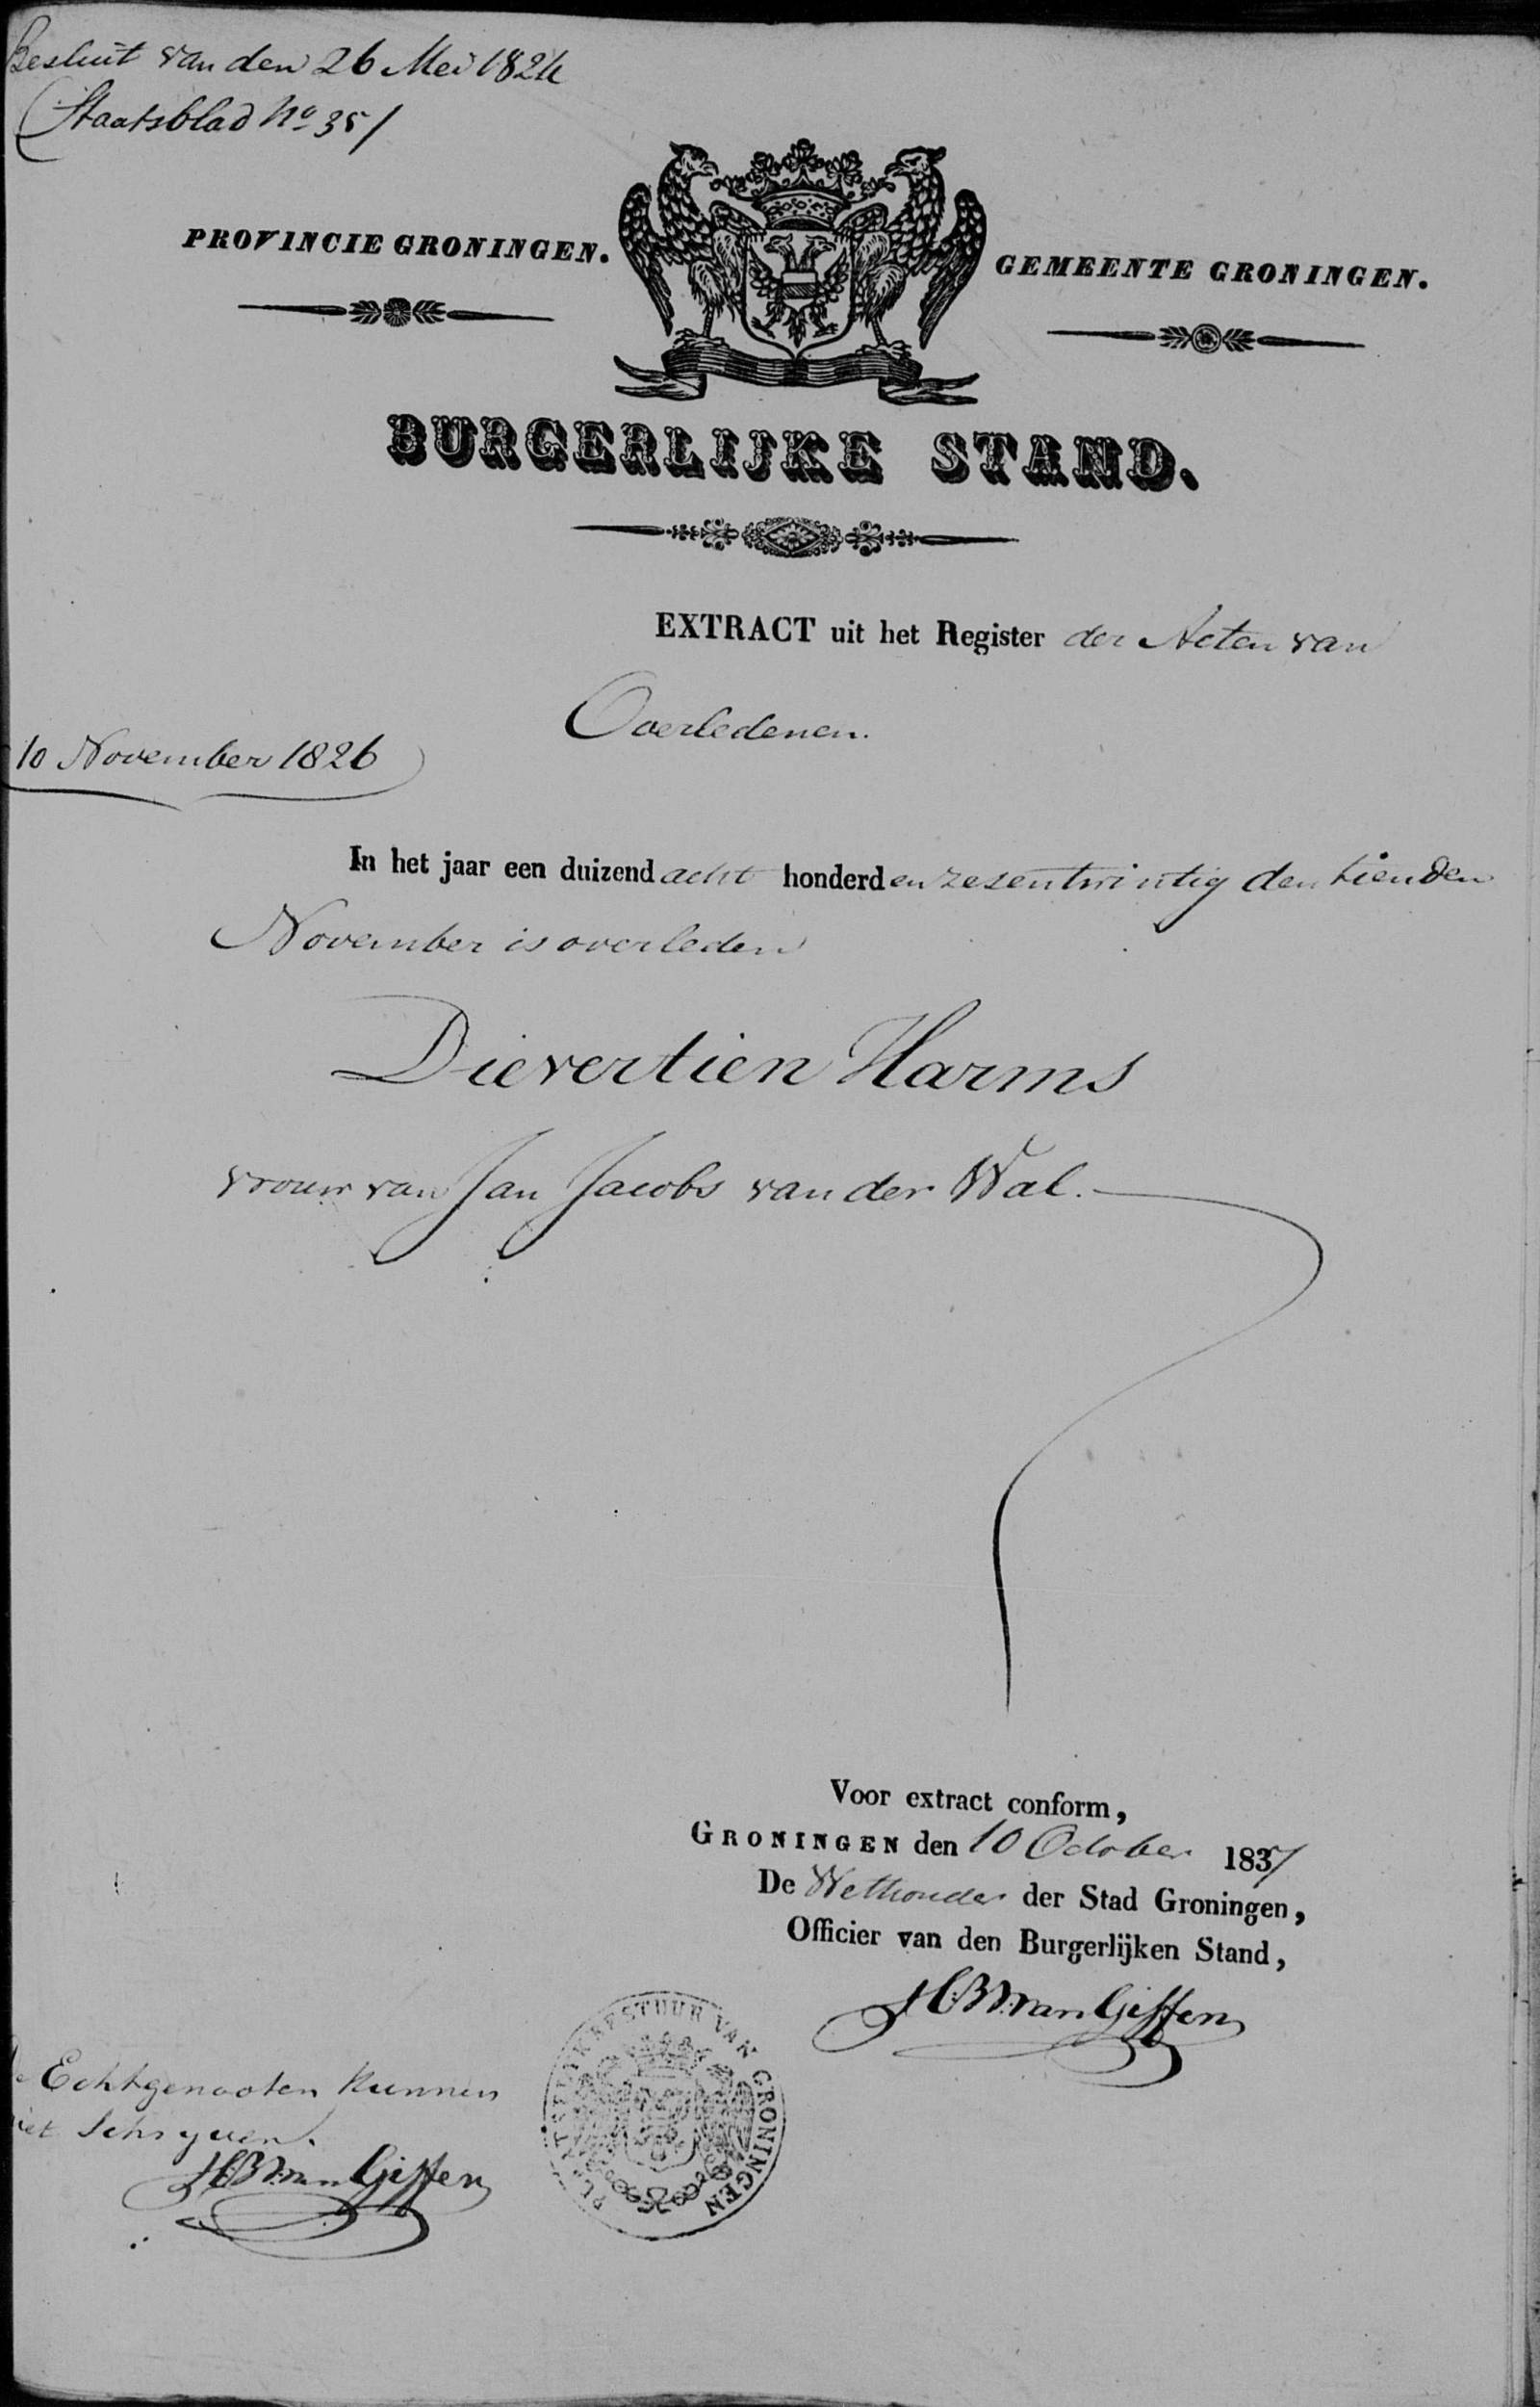 Besluit van den 26 Mei 1824
(Staatsblad No 35/
PROVINCIE GRONINGEN.
GEMEENTE GRONINGEN.
BURGERLIJKE STAND.
EXTRACT uit het Register der Acten van
Overledenen.
10 November 1826
In het jaar een duizend acht honderd en zesentwintig den tienden
November is overleden
Dievertien Harms
vrouw van Jan Jacobs van der Wal.
Voor extract conform,
GRONINGEN den 10 October 1837
De Wethouder der Stad Groningen,
Officier van den Burgerlijken Stand,
HBvan Giffen
Echtgenooten kunnen
iet Schryven.
HBvan Giffen
BESTUUR VAN GRONINGEN